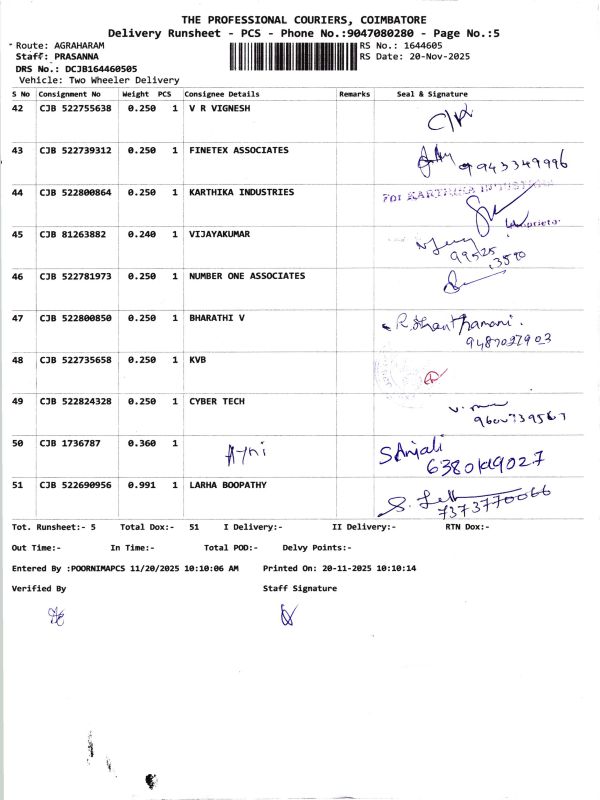 THE PROFESSIONAL COURIERS, COIMBATORE
Delivery Runsheet - PCS - Phone No.:9047080280 - Page No.:5
Route: AGRAHARAM RS No.: 1644605
Staff: PRASANNA RS Date: 20-Nov-2025
DRS No.: DCJB164460505
Vehicle: Two Wheeler Delivery
S No Consignment No Weight PCS Consignee Details Remarks Seal & Signature
42 CJB 522755638 0.250 1 V R VIGNESH
43 CJB 522739312 0.250 1 FINETEX ASSOCIATES
9943349996
44 CJB 522800864 0.250 1 KARTHIKA INDUSTRIES
For KARTHIKA INDUSTRIES
Proprietor
45 CJB 81263882 0.240 1 VIJAYAKUMAR
99525
13590
46 CJB 522781973 0.250 1 NUMBER ONE ASSOCIATES
47 CJB 522800850 0.250 1 BHARATHI V
R. Shanthamani.
9487027903
48 CJB 522735658 0.250 1 KVB
49 CJB 522824328 0.250 1 CYBER TECH
50 CJB 1736787 0.360 1
S Anjali
51 CJB 522690956 0.991 1 LARHA BOOPATHY
7373770066
Tot. Runsheet:- 5 Total Dox:- 51 I Delivery:- II Delivery:- RTN Dox:-
Out Time:- In Time:- Total POD:- Delvy Points:-
Entered By :POORNIMAPCS 11/20/2025 10:10:06 AM Printed On: 20-11-2025 10:10:14
Verified By Staff Signature